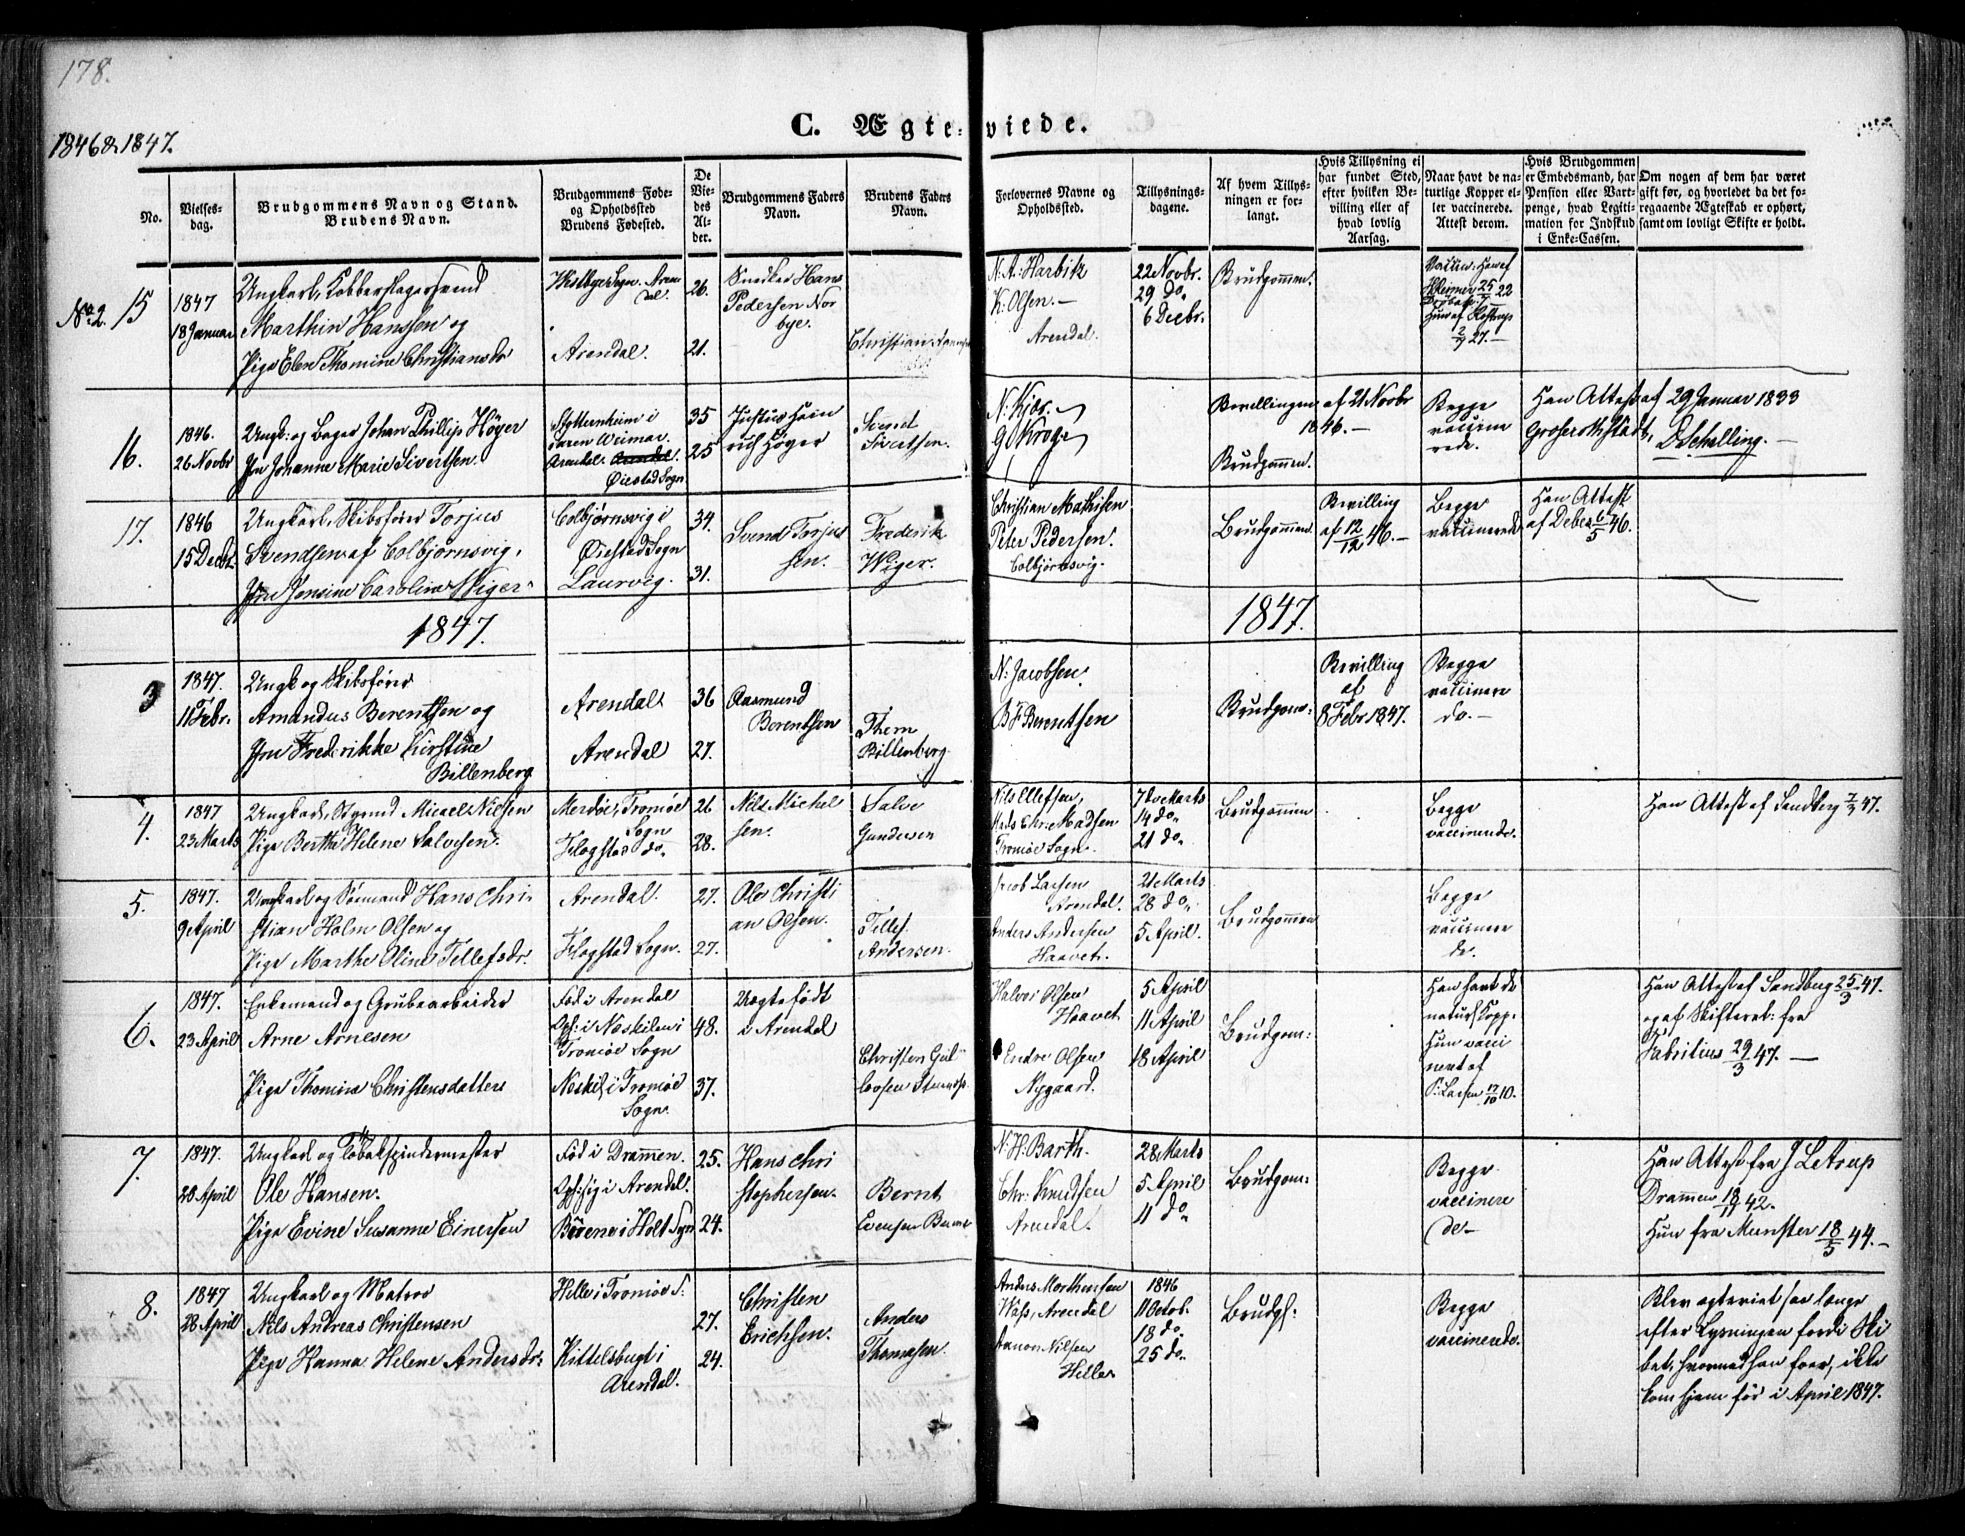 178.
1846 & 1847.
C. Ægte-viede.
No.
Vielses-dag.
Brudgommens Navn og Stand.
Brudens Navn.
Brudgommens Føde- og Opholdssted
Brudens Fødested.
De Viedes Alder.
Brudgommens Faders Navn.
Brudens Faders Navn.
Forlovernes Navne og Opholdssted.
Tillysnings-dagene.
Af hvem Tillysningen er forlangt.
Hvis Tillysning ei har fundet Sted, efter hvilken Bevilling eller af hvad lovlig Aarsag.
Naar havt de naturlige Kopper eller vaccinerede. Attest derom.
Hvis Brudgommen er Embedsmand, har Pension eller Vartpenge, hvad Legitimation for Indskud i Enke-Cassen.
Om nogen af dem har været gift før, og hvorledet da det foregaaende Ægteskab er ophørt, samt om lovligt Skifte er holdt.
No. 2. 15
1847
18 Januar
Ungkarl, Kobberslagersvend
Marthin Hanssen og
Pige Elen Thomine Christiansdr
Arendal
Arendal.
26.
21.
Snedker Hans
Pedersen Nor
bye.
Christian
N. A: Harbik
K: Olsen. -
Arendal.
22 Novbr.
29 do.
6 Decbr.
Brudgommen.
16.
1846.
26 Novbr
Ungk: og Bager Johan Phillip Höyer
Jfr Johanne Marie Sivertsen.
Stotternheim i
Saxen Weimar.
Arendal. Arendal.
Øiestad Sogn
35
25
Justus Hein
rich Höyer
Svend
Sivertsen.
N. Kjær.
G. Kroge
Brudgommen.
Bevillingen af 21 Novbr
1846. -
Begge
vaccine
rede.
Han Attest af 29 Januar 1833
D. Schilling. -
17.
1846
15 Decbr.
Ungkarl, Skibsfører Torjus
Svendsen af Colbjørnsvig,
Jfr Jensine Caroline Wiger
Colbjørnsvig i
Øiestad Sogn
Laurvig.
34.
31.
Svend Torjus
sen.
Frederik
Wiger.
Christian Mathisen
Peter Pedersen.
Colbjørnsvig.
Brudgommen.
Bevilling
af 12/12 46. -
Begge
vaccinerede
Han Attest
af Debes 6/5 46.
1847.
1847.
3
1847.
11 Febr.
Ungk og Skibsfører
Amandus Berentsen og
Jfr Frederikke Kirstine
Billenberg
Arendal
Arendal
36
27.
Aasmund
Berentsen
Them
Billenberg.
N: Jacobsen.
B F Berentsen
Brudgom:
Bevilling
af
8 Febr 1847.
Begge
vaccinere
de. -
4.
1847
23 Marts
Ungkarl, Styrmd Micael Nielsen
Pige Bertha Helene Salvesen.
Merdøe, Tromøe
Sogn
Flagstad do.
26
28.
Nels Michel
sen.
Salve
Gundersen
Nils Ellefsen,
Mads Chr: Madsen
Tromøe Sogn.
7de Marts
14 do.
21 do.
Brudgommen
Begge
vaccinerede.
Han Attest af Sandberg 7/3 47.
5.
1847.
9 April
Ungkarl og Sömand Hans Chri-
stian Holm Olsen og
Pige Marthe Oline Tellefsdr.
Arendal.
Flagstad Sogn.
27.
27.
Ole Christi
an Olsen.
Tellef
Andersen.
Jacob Larsen
Arendal.
Anders Andersen
Haavet.
21 Marts
28 do.
5 April.
Brudgommen
Begge
vaccinere
de.
6.
1847.
23 April
Enkemand og Grubearbeider
Arne Arnesen
Pige Thomine Christensdatter
Fød i Arendal
Oph: i Neskilen i
Tromøe Sogn
Neskil i Tromøe
Sogn.
48.
37.
Uægtefødt
i Arendal
Christen Gul
Halvor Olsen
Haavet
Endre Olsen
Nygaard.
5 April
11 April
18 April
Brudgom:
Han havt de
naturl Kopp.
Hun vacci
neret af
P: Larsen 17/10 10.
Han Attest af Sandberg 25/3 47.
og af Skifteret: fra
Fabritius 29/3 47. -
7.
1847.
20 April
Ungkarl og Tobakspindermester
Ole Hansen.
Pige Evine Susanne Einersen
Fød i Drammen.
Oph: sig i Arendal.
i Holt Sogn
25.
24.
Hans Chri
stophersen.
Bernt
Evensen
N. H: Barth.
Chr: Knudsen
Arendal.
28 Marts
5 April
11 do
Brudgom:
Begge
vaccinere
de -
Han Attest fra J Letrup
Drammen 18/11 42.
Hun fra Munster 18/5 44. -
8.
1847
28 April
Ungkarl og Matros
Nils Andreas Christensen
Pige Hanna Helene Andersdr.
Hille i Tromøe S:
Kittelsbugt i
Arendal.
27.
24.
Christen
Erichsen.
Anders
Thomesen.
Anders Morthensen
Arendal
Aanon Nilsen
Hille
1846
11 Octob.
18 do.
25 do.
Brudg:
Begge
vaccinerede.
Blev egteviet saa længe
efter Lysningen fordi Ski
bet, hvormed han foer, ikke
kom hjem før i April 1847.